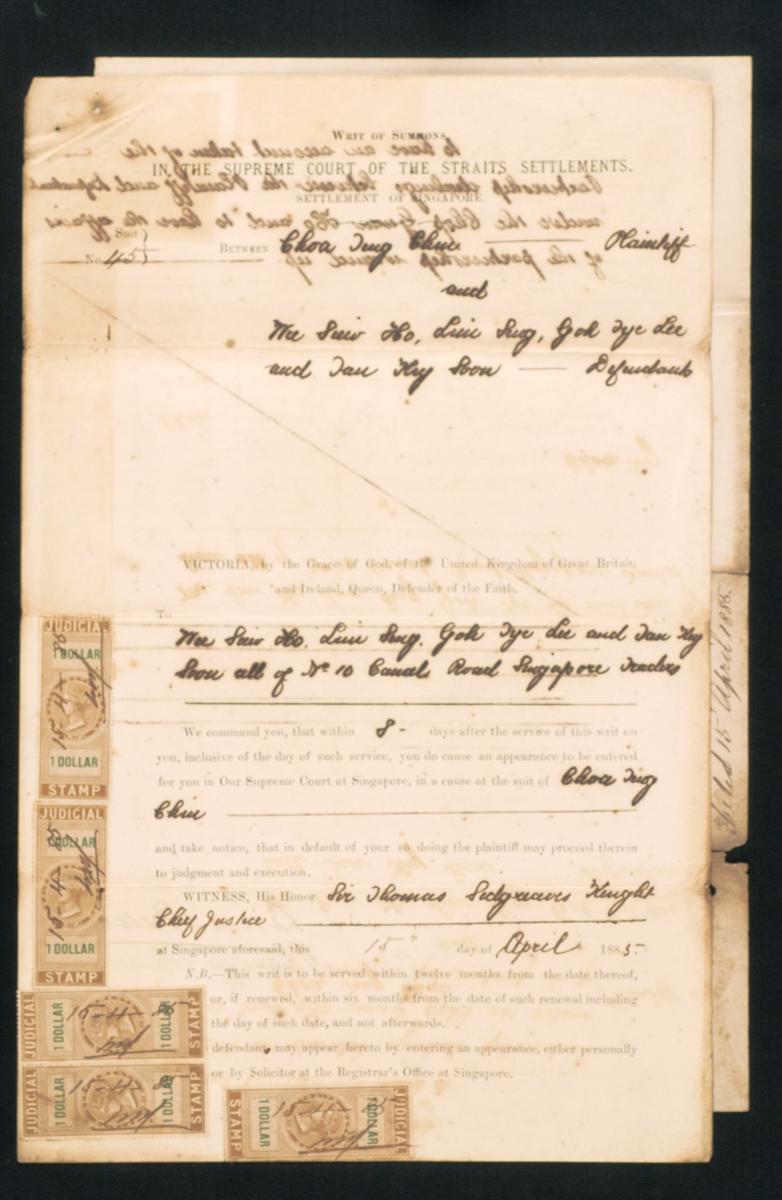 WRIT OF SUMMONS
IN THE SUPREME COURT OF THE STRAITS SETTLEMENTS.
SETTLEMENT OF SINGAPORE.
Suit
No. 45
BETWEEN Choa Ting Chin Plaintiff
and
Wee Siew Ho, Lim Seng, Goh Tye Lee
and Tan Key Soon — Defendants
VICTORIA, by the Grace of God, of the United Kingdom of Great Britain
and Ireland, Queen, Defender of the Faith.
To
Wee Siew Ho, Lim Seng, Goh Tye Lee and Tan Key
Soon all of No 10 Canal Road Singapore Traders
We command you, that within 8 - days after the service of this writ on
you, inclusive of the day of such service, you do cause an appearance to be entered
for you in Our Supreme Court at Singapore, in a cause at the suit of Choa Ting
Chin
and take notice, that in default of your so doing the plaintiff may proceed therein
to judgment and execution.
WITNESS, His Honor Sir Thomas Sidgreaves Knight
Chief Justice
at Singapore aforesaid, this 15" day of April 1885.
N.B.—This writ is to be served within twelve months from the date thereof,
or, if renewed, within six months from the date of such renewal including
the day of such date, and not afterwards.
defendant may appear hereto by entering an appearance, either personally
or by Solicitor at the Registrar's Office at Singapore.
Filed 15 April 1885.
JUDICIAL
1 DOLLAR
15-4-85
1 DOLLAR
STAMP
JUDICIAL
1 DOLLAR
15-4-85
1 DOLLAR
STAMP
JUDICIAL
1 DOLLAR
15-4-85
1 DOLLAR
STAMP
JUDICIAL
1 DOLLAR
15-4-85
1 DOLLAR
STAMP
STAMP
1 DOLLAR
15-4-85
1 DOLLAR
JUDICIAL